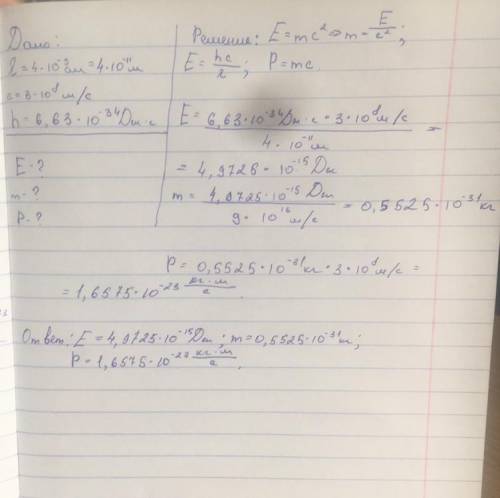 Дано:
λ = 4·10⁻⁹см = 4·10⁻¹¹м
c = 3·10⁸ м/с
h = 6,63·10⁻³⁴ Дж·с
E - ?
m - ?
P - ?
Решение: E = mc² ⇒ m = E/c²;
E = hc/λ; P = mc.
E = 6,63·10⁻³⁴Дж·с · 3·10⁸ м/с / 4·10⁻¹¹м =
= 4,9725·10⁻¹⁵ Дж
m = 4,9725·10⁻¹⁵ Дж / 9·10¹⁶ м/с = 0,5525·10⁻³¹ кг
P = 0,5525·10⁻³¹кг · 3·10⁸ м/с =
= 1,6575·10⁻²³ кг·м/с.
Ответ: E = 4,9725·10⁻¹⁵Дж; m = 0,5525·10⁻³¹кг;
P = 1,6575·10⁻²³ кг·м/с.